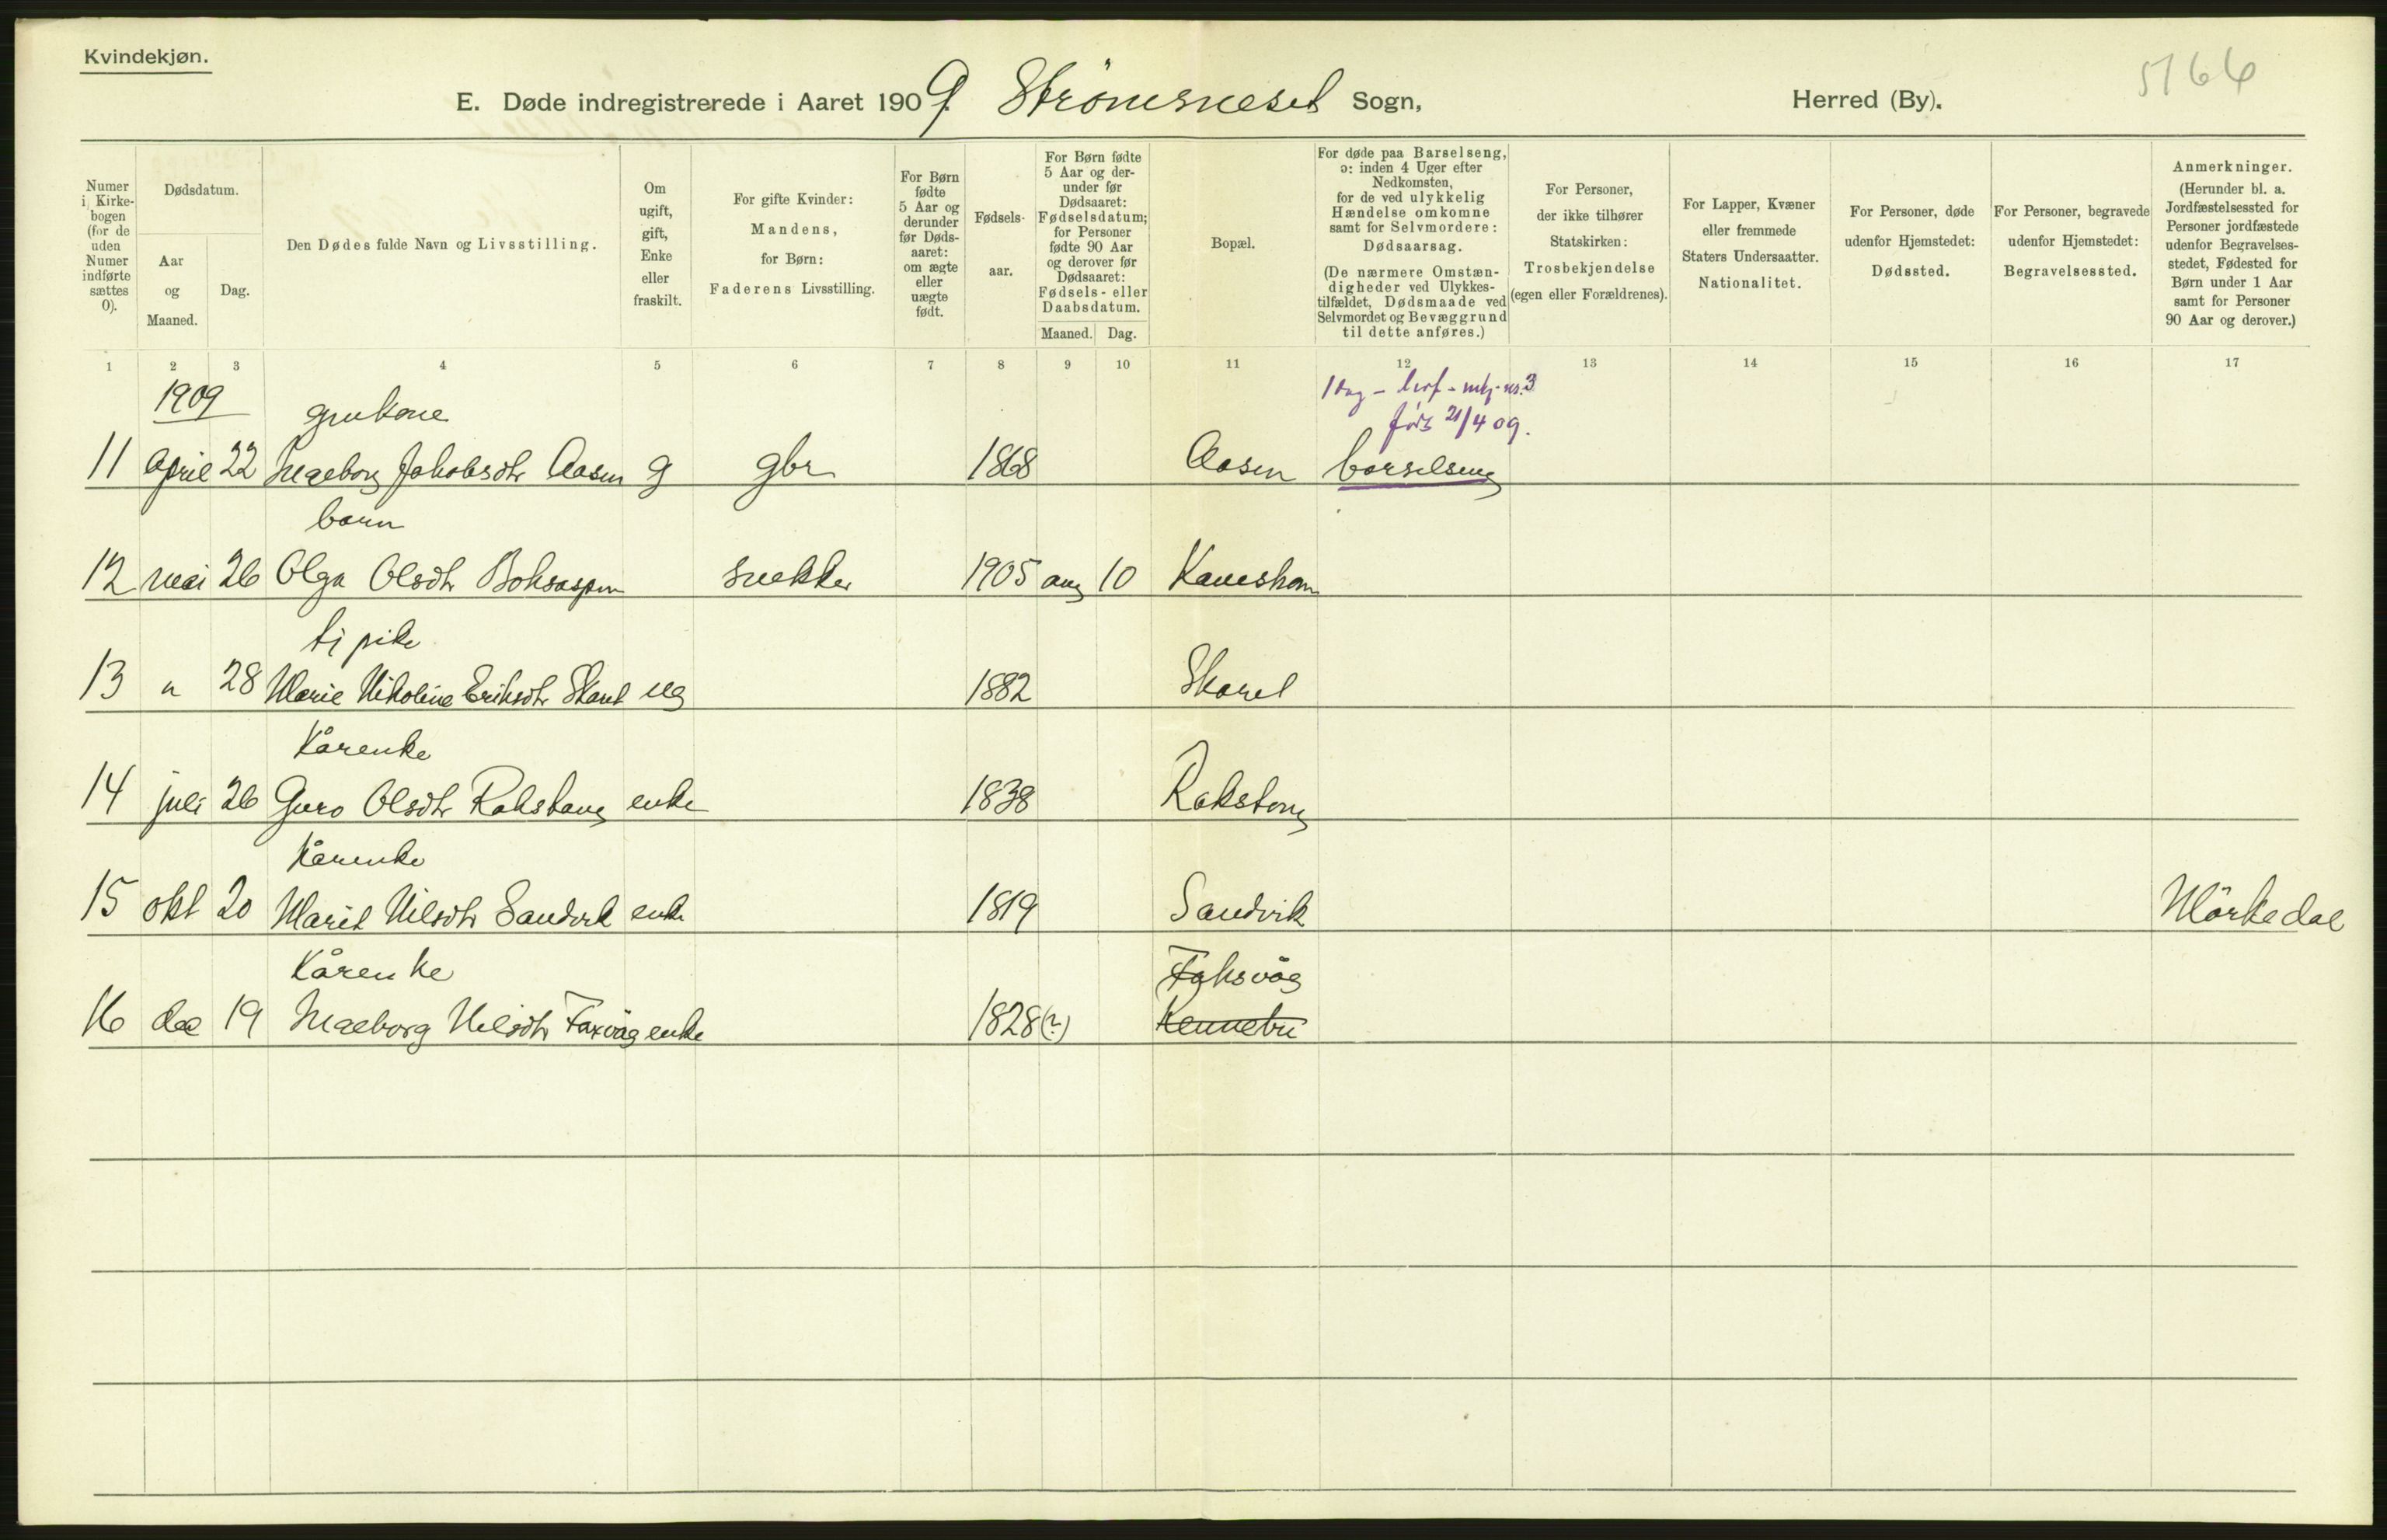 Kvindekjøn.
5166
E. Døde indregistrerede i Aaret 1909. Strömsneset Sogn, Herred (By).
Numer i Kirkebogen (for de uden Numer indførte sættes 0).
Dødsdatum.
Aar og Maaned.
Dag.
Den Dødes fulde Navn og Livsstilling.
Om ugift, gift, Enke eller fraskilt.
For gifte Kvinder: Mandens, for Børn: Faderens Livsstilling.
For Børn fødte 5 Aar og derunder før Dødsaaret: om ægte eller uægte født.
Fødselsaar.
For Børn fødte 5 Aar og derunder før Dødsaaret: Fødselsdatum; for Personer fødte 90 Aar og derover før Dødsaaret: Fødsels- eller Daabsdatum.
Maaned. Dag.
Bopæl.
For døde paa Barselseng, ɔ: inden 4 Uger efter Nedkomsten, for de ved ulykkelig Hændelse omkomne samt for Selvmordere: Dødsaarsag. (De nærmere Omstændigheder ved Ulykkestilfældet, Dødsmaade ved Selvmordet og Bevæggrund til dette anføres.)
For Personer, der ikke tilhører Statskirken: Trosbekjendelse (egen eller Forældrenes).
For Lapper, Kvæner eller fremmede Staters Undersaatter. Nationalitet.
For Personer, døde udenfor Hjemstedet: Dødssted.
For Personer, begravede udenfor Hjemstedet: Begravelsessted.
Anmerkninger. (Herunder bl. a. Jordfæstelsessted for Personer jordfæstede udenfor Begravelsesstedet, Fødested for Børn under 1 Aar samt for Personer 90 Aar og derover.)
1 2 3 4 5 6 7 8 9 10 11 12 13 14 15 16 17
1909
grukone
1 Dag
21/4 09.
11 april 22 Ingeborg Jakobsdtr Aasen g gbr 1868 Aasen barselseng
barn
12 mai 26 Olga Olsdtr snekker 1905 aug 10
tj pike
13 " 28 Marie Nikoline Eriksdtr Skaret ug 1882 Skaret
Kårenke
14 juli 26 Guro Olsdtr Rakstang enke 1838 Rakstang
Kårenke
15 okt 20 Marit Nilsdtr Sandvik enke 1819 Sandvik Mörkedal
Kårenke
Foksvåg
16 de 19 Ingeborg Nilsdtr Faxvåg enke 1828(?) Kennebu